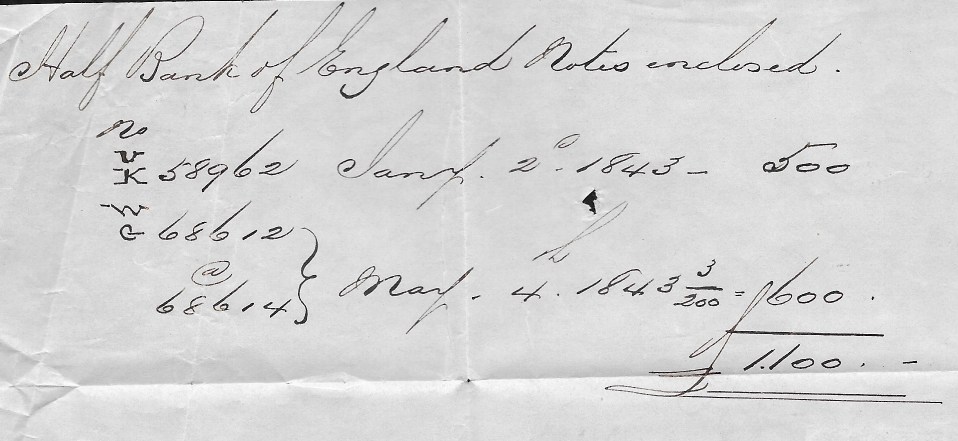 Half Bank of England Notes enclosed.
No
V
K 58962 Jany. 2d. 1843 - 500
W
G 68612
@
68614 } May. 4th. 1843 3/200 = 600.
£ 1.100. -